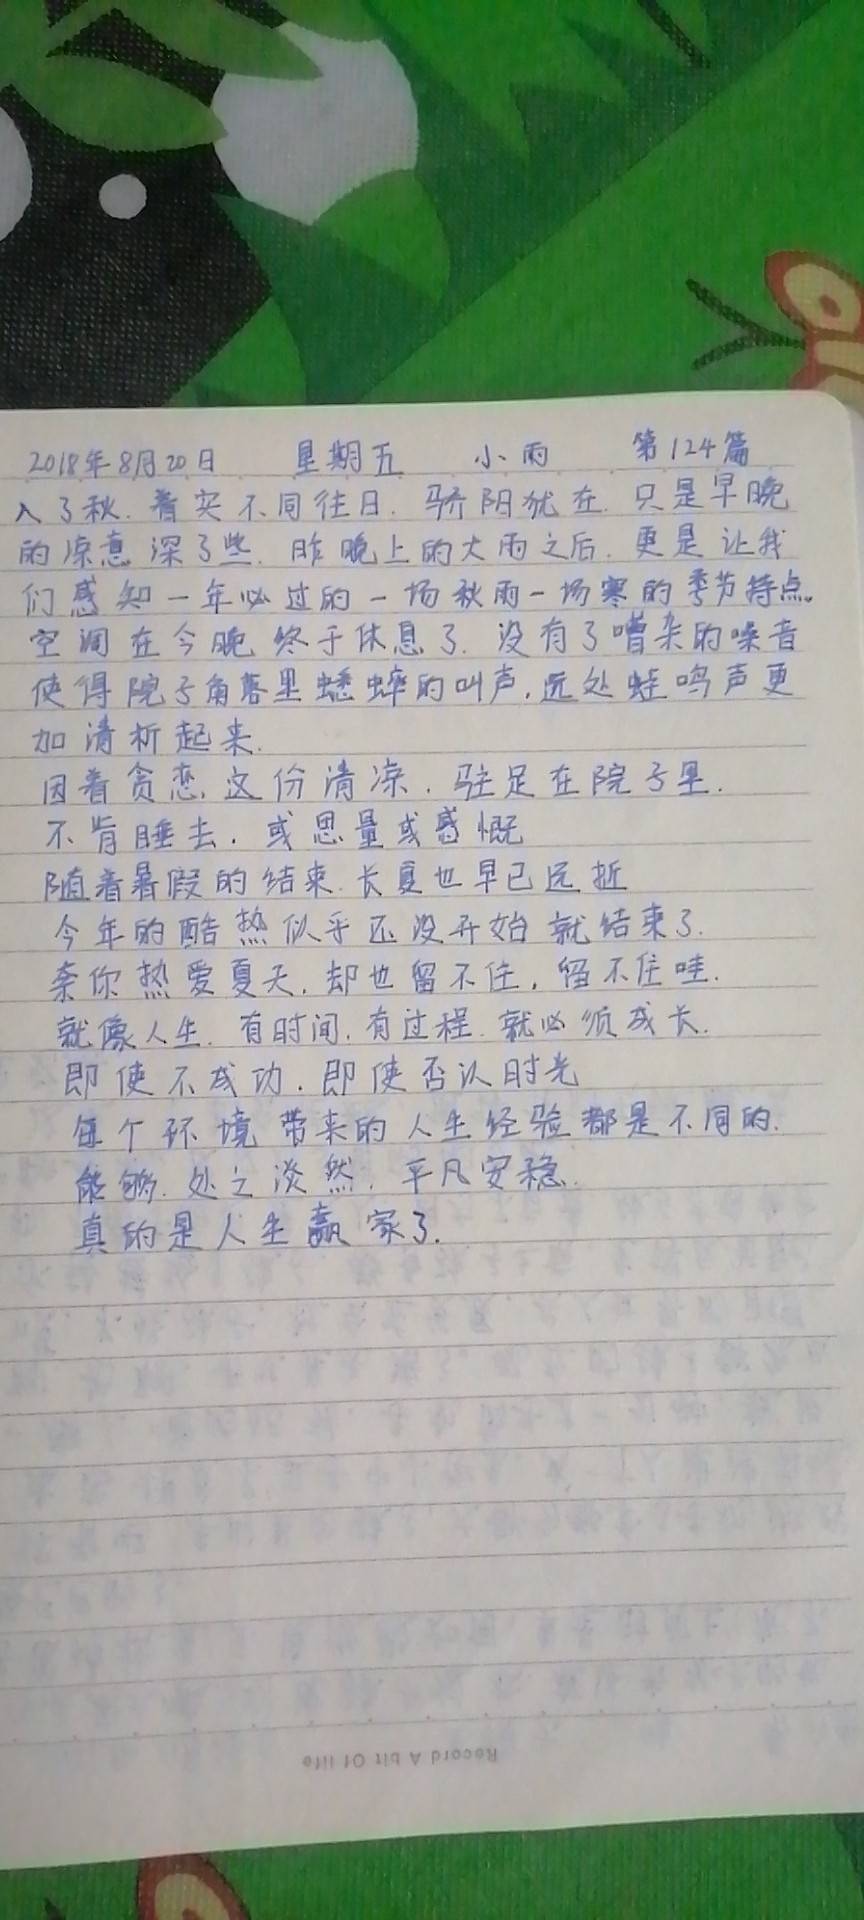 2018年8月20日 星期五 小雨 第124篇
入了秋.着实不同往日.骄阳犹在.只是早晚
的凉意深了些.昨晚上的大雨之后.更是让我
们感知一年必过的一场秋雨一场寒的季节特点。
空调在今晚终于休息了.没有了嘈杂的噪音
使得院子角落里蟋蟀的叫声,远处蛙鸣声更
加清析起来.
因着贪恋这份清凉.驻足在院子里.
不肯睡去.或思量或感慨
随着暑假的结束.长夏也早已远折
今年的酷热似乎还没开始就结束了.
奈你热爱夏天.却也留不住,留不住哇.
就像人生.有时间.有过程.就必须成长.
即使不成功.即使否认时光
每个环境带来的人生经验都是不同的.
能够.处之淡然.平凡安稳.
真的是人生赢家了.
Record A bit Of life